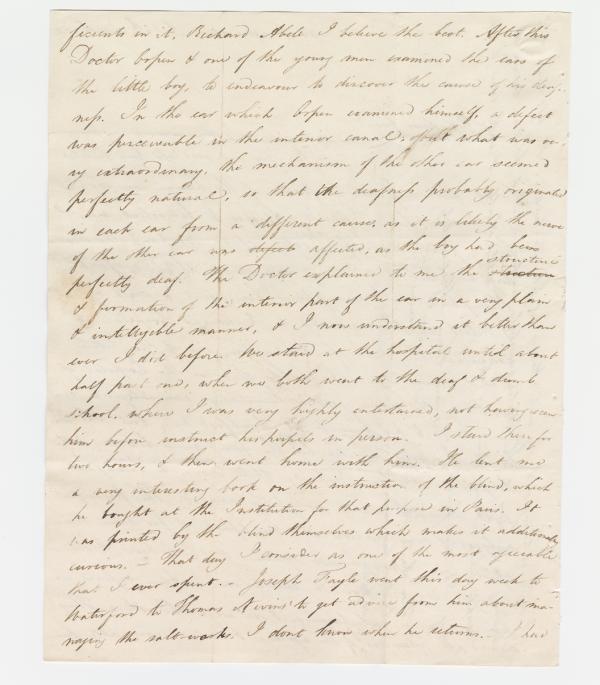 ficients in it, Richard Abell I believe the best. After this
Doctor &
one of the young men examined the ears of
the little boy, to endeavour to discover the cause of his deaf-
ness. In the ear which examined himself, a defect
was perceivable in the interior canal, but what was ve-
ry extraordinary, the mechanism of the other ear seemed
perfectly natural, so that the deafness probably originated
in each ear from a different cause, as it is likely the nerve
of the other ear was affected, as the boy had been
structure
perfectly deaf. The Doctor explained to me the
& formation of the interior part of the ear in a very plain
& intelligible manner, & I now understand it better than
ever I did before. We staid at the hospital until about
half past one, when we both went to the deaf & dumb
school, where I was very highly entertained, not having seen
him before instruct his pupils in person. I staid there for
two hours, & then went home with him. He lent me
a very interesting book on the instruction of the blind, which
he bought at the Institution for that purpose in Paris. It
was printed by the blind themselves which makes it additionally
curious. – That day I consider as one of the most agreeable
that I ever spent. – Joseph Fayle went this day week to
Waterford to Thomas to get advice from him about ma-
naging the salt-works. I dont know when he returns. – I had